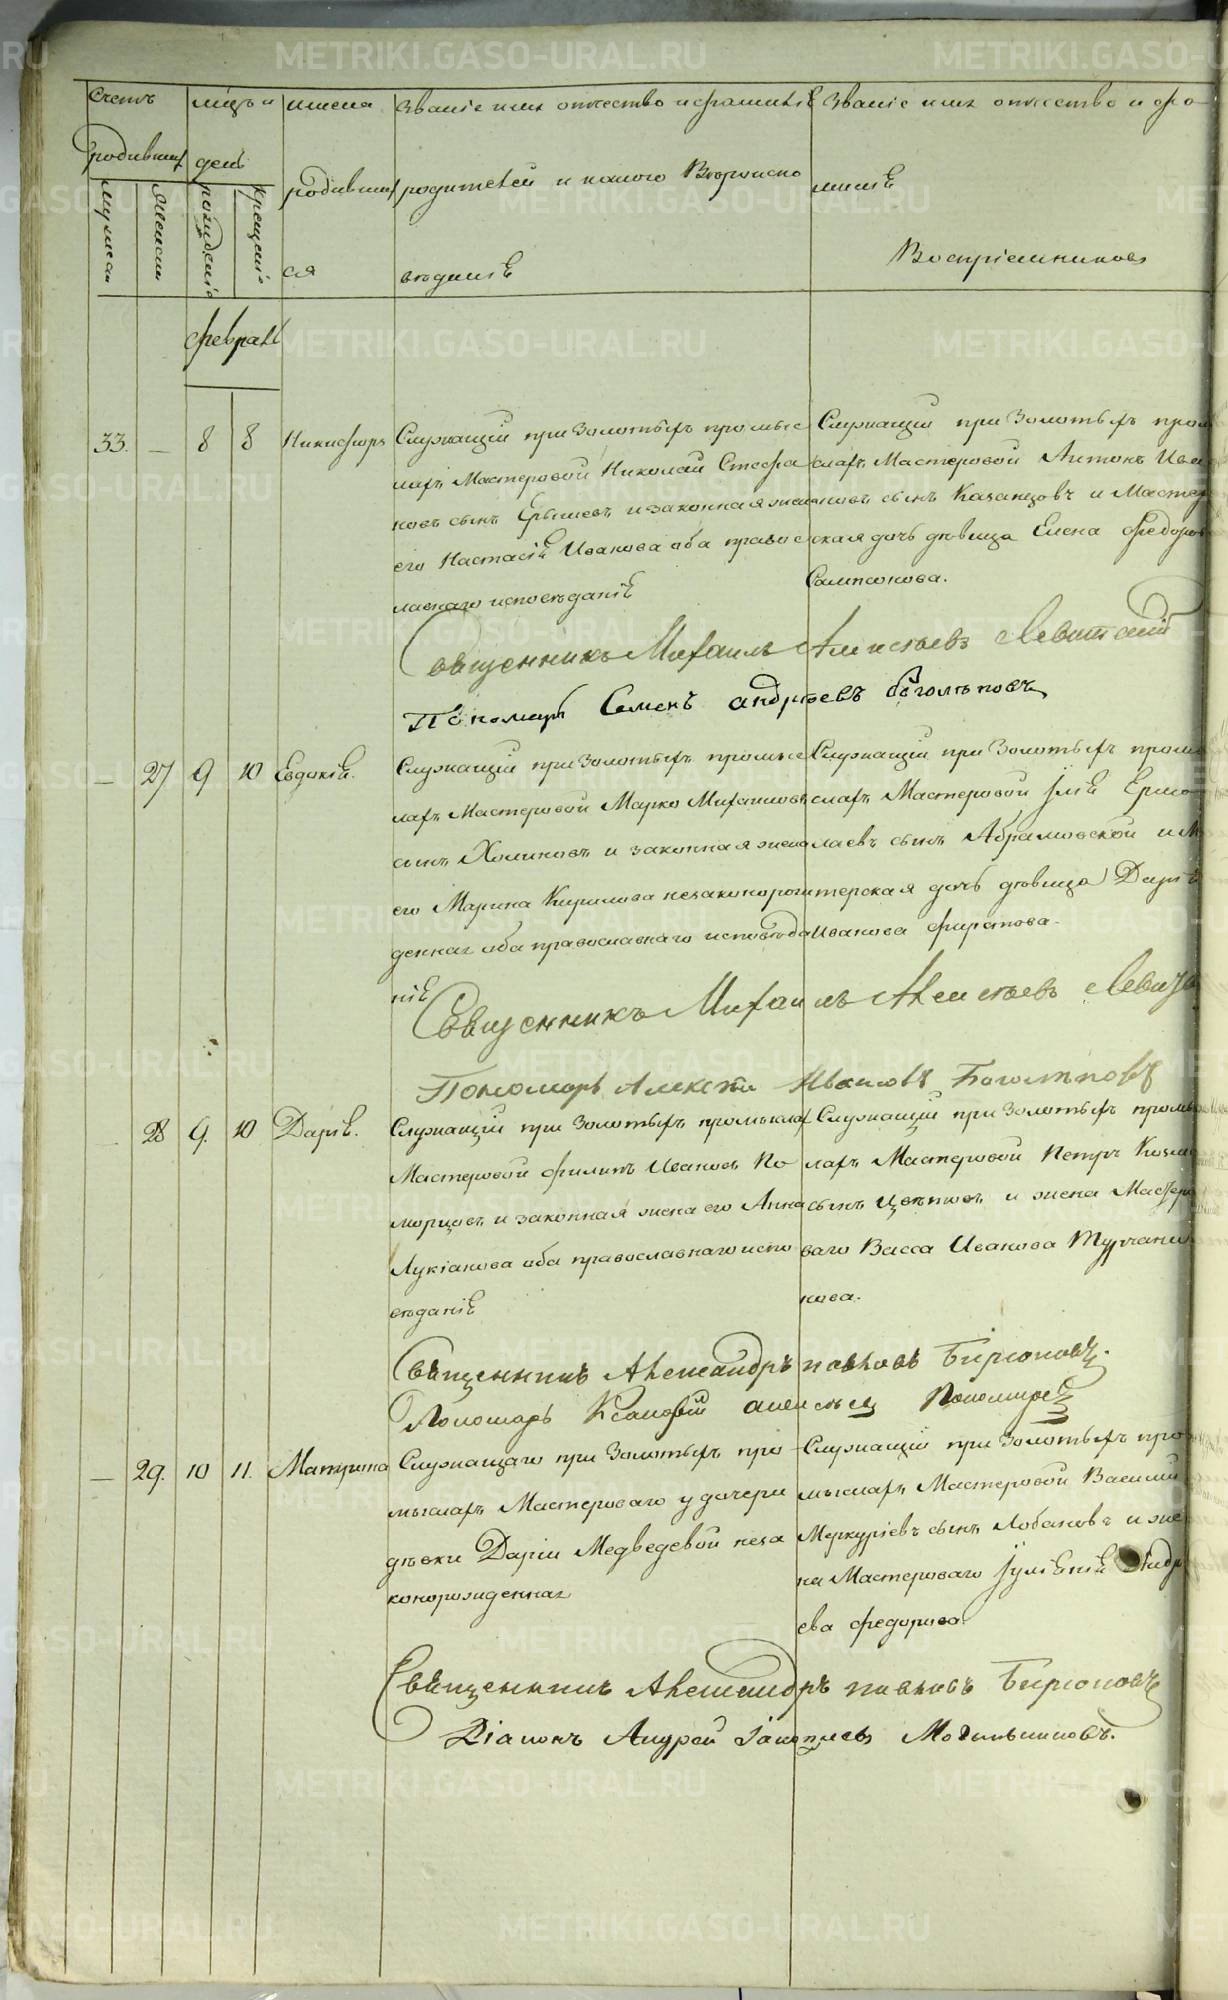 METRIKI.GASO-URAL.RU
Счетъ родившихся
мужеска
женска
мѣсяцъ и день
рожденія
крещенія
имена родившихся
Званіе имя отчество и фамилія
родителей и какого вѣроиспо
вѣданія
Званіе имя отчество и фа
милія
Воспріемниковъ
февраль
33. — 8 8 Никифоръ
Служащій при Золотыхъ промыс
лахъ Мастеровой Николай Стефа
новъ сынъ Ерышевъ и законная жена
его Настасія Иванова оба правос
лавнаго исповѣданія
Служащій при Золотыхъ промы
слахъ Мастеровой Антонъ Ива
новъ сынъ Казанцовъ и Мастер
ская дочь дѣвица Елена Федоров
Сампсонова.
Священникъ Михаилъ Алексѣевъ Левитскій
Пономарь Семенъ Андрѣевъ Боголѣповъ
— 27 9 10 Евдокія.
Служащій при Золотыхъ промыс
лахъ Мастеровой Марко Михаиловъ
сынъ Холиковъ и законная жена
его Марина Кирилова незаконорож
денная оба православнаго исповѣда
нія
Служащій при Золотыхъ промы
слахъ Мастеровой Илія Ермо
лаевъ сынъ Абрамовской и Ма
стерская дочь дѣвица Дарія
Иванова Фирсова.
Священникъ Михаилъ Алексѣевъ Левитс
Пономарь Алексѣй Ивановъ Боголѣповъ
— 28 9. 10 Дарія.
Служащій при Золотыхъ промыслах
Мастеровой Филипъ Ивановъ По
морцовъ и законная жена его Анна
Лукіанова оба православнаго испо
вѣданія
Служащій при Золотыхъ промыс
лахъ Мастеровой Петръ Козми
сынъ Цвѣтковъ и жена Мастеро
ваго Васса Иванова Турчани
нова.
Священникъ Александръ Павловъ Бирюковъ.
Пономарь Алексѣевъ Пономаревъ
— 29. 10 11. Матрона
Служащаго при Золотыхъ про
мыслахъ Мастероваго у дочери
дѣвки Даріи Медведевой неза
конорожденная
Служащій при Золотыхъ про
мыслахъ Мастеровой Василій
Меркуріевъ сынъ Лобановъ и же
на Мастероваго Іуліянія Андре
ева Федорова.
Священникъ Александръ Павловъ Бирюковъ
Діаконъ Андрей Іаковлевъ